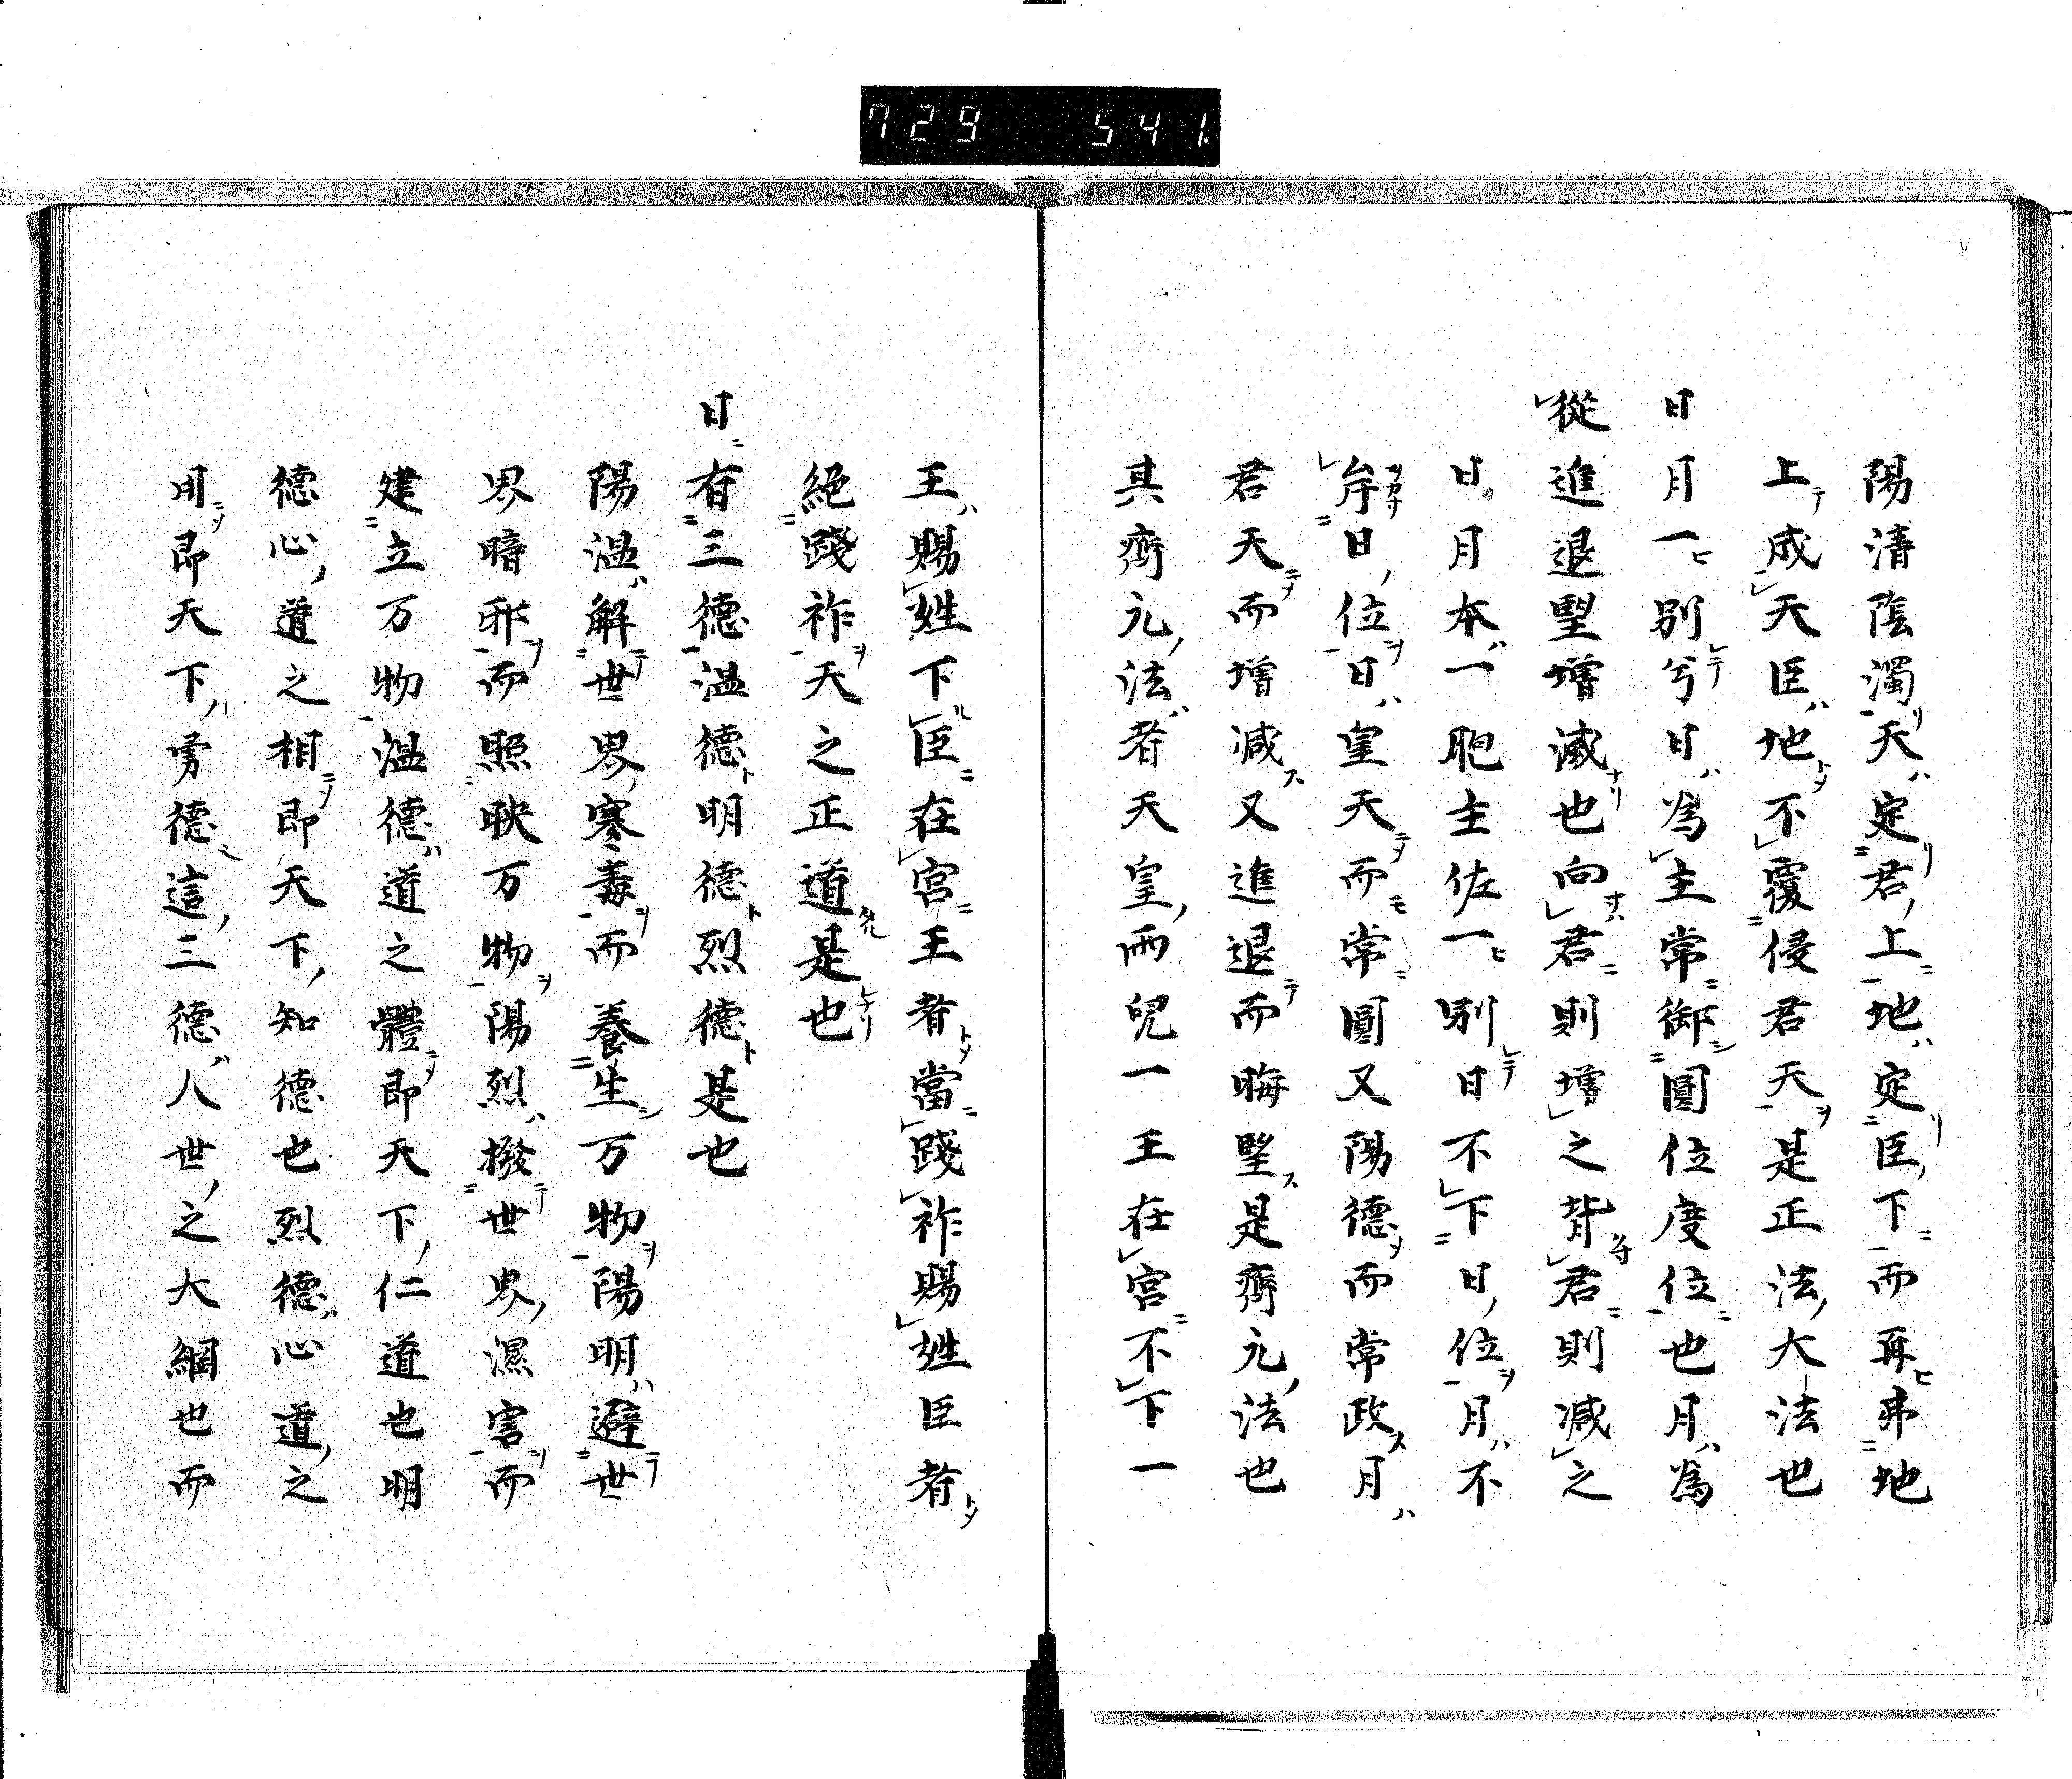 729 541
陽清陰濁天定君上地定臣下而再弗地
上成天臣地不覆侵君天是正法大法也
日月一別兮日為主常御圓位度位也月為
從進退望増滅也向君則増之背君則減之
日月本一胞主佐一別日不下日位月不
牟日位日皇天而常圓又陽德而常政月
君天而増減又進退而晦望是齊元法也
其齊元法者天皇兩兒一王在宮不下一
王賜姓下臣在宮王者當踐祚賜姓臣者
絕踐祚天之正道是也
日有三德溫德明德烈德是也
陽溫解世界寒毒而養生万物陽明避世
界暗邪而照映万物陽烈撥世界濕害而
建立万物溫德道之體即天下仁道也明
德心道之相即天下知德也烈德心道之
用即天下勇德這三德人世之大綱也而